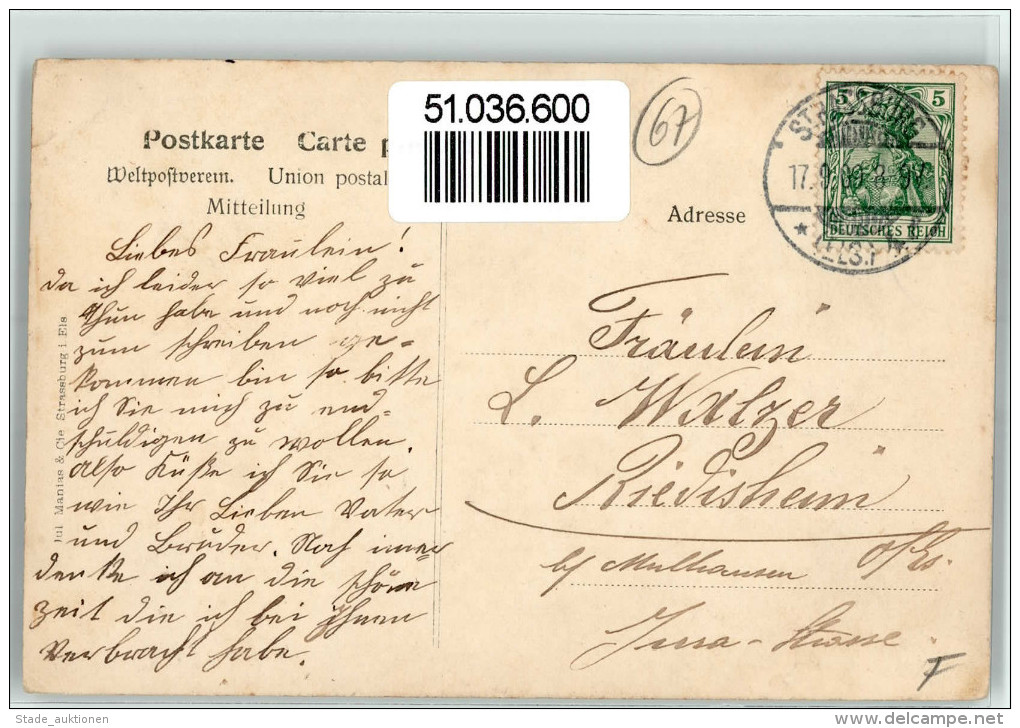 51.036.600
67
Postkarte Carte p
Weltpostverein. Union postal
Mitteilung
Adresse
5 5
DEUTSCHES REICH
STRASSBURG
17.9.09. 8-9
* (ELS.) *
Liebes Fräulein!
da ich leider so viel zu
thun habe und noch nicht
zum schreiben ge-
kommen bin so bitte
ich Sie mich zu end-
schuldigen zu wollen.
also Küße ich Sie so
wie Ihr Lieben Vater
und Bruder. Noch imer
denke ich an die schöne
zeit die ich bei Ihnen
verbracht habe.
Jul Manias & Cie Strassburg i. Els
Fräulein
L. Walzer
Riedisheim
o/Els.
b/ Mulhausen
Jura-Strasse
F
Stade_auktionen
www.delcampe.net